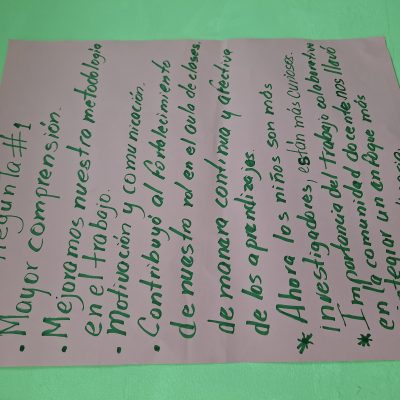 Pregunta #1
• Mayor comprensión.
• Mejoramos nuestra metodología
en el trabajo.
• Motivación y comunicación.
• Contribuyó al fortalecimiento
de nuestro rol en el aula de clases.
de manera continua y afectiva
de los aprendizajes.
* Ahora los niños son más
investigadores, están más curiosos.
* Importancia del trabajo colaborativo
en la comunidad docente nos llevó
integrar un enfoque más